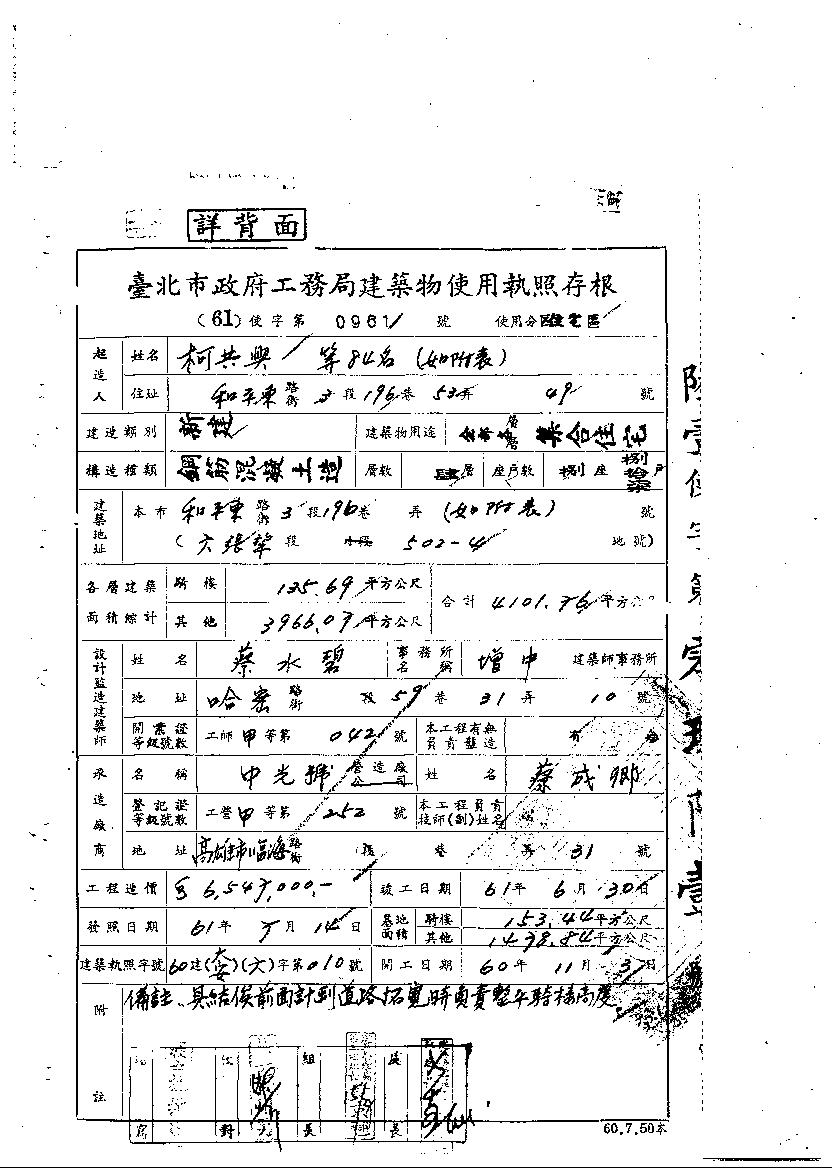 詳背面
臺北市政府工務局建築物使用執照存根
(61)使字第 0961 號 使用分區住宅區
起造人 姓名 柯共興 等84名(如附表)
住址 和平東 路街 3 段 196 巷 53 弄 49 號
建造類別 新建 建築物用途 全部各層 集合住宅
構造種類 鋼筋混凝土造 層數 肆層 座戶數 捌座 捌拾柒戶
建築地址 本市 和平東 路街 3 段 196 巷 弄 (如附表) 號
(六張犂 段 小段 502-4 地號)
各層建築面積綜計 騎樓 135.69 平方公尺 合計 4101.76 平方公尺
其他 3966.07 平方公尺
設計監造建築師 姓名 蔡水碧 事務所名稱 增中 建築師事務所
地址 哈密 路街 段 59 巷 31 弄 10 號
開業證等級號數 工師甲等第 042 號 本工程有無負責監造 有
承造廠商 名稱 中光號 營造廠公司 姓名 蔡成鄉
登記證等級號數 工營甲等第 252 號 本工程負責技師(副)姓名
地址 高雄市臨海 路街 段 巷 弄 31 號
工程造價 6,547,000.- 竣工日期 61年 6月 30日
發照日期 61年 月 14日 基地面積 騎樓 153.44 平方公尺
其他 1438.84 平方公尺
建築執照字號 60建(大安)(六)字第010號 開工日期 60年 11月 3日
附註 備註、具結俟前面計劃道路拓寬時負責整平騎樓高度
組長
長
60.7.50本